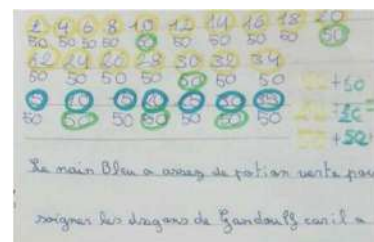 2 4 6 8 10 12 14 16 18 20
50 50 50 50 50 50 50 50 50 50
22 24 26 28 30 32 34
50 50 50 50 50 50 50
5 10 15 20 25 30 35
50 50 50 50 50 50 50
+50
+50
Le nain Bleu a assez de potion verte pou
soigner les dragons de Gandoulf car il a